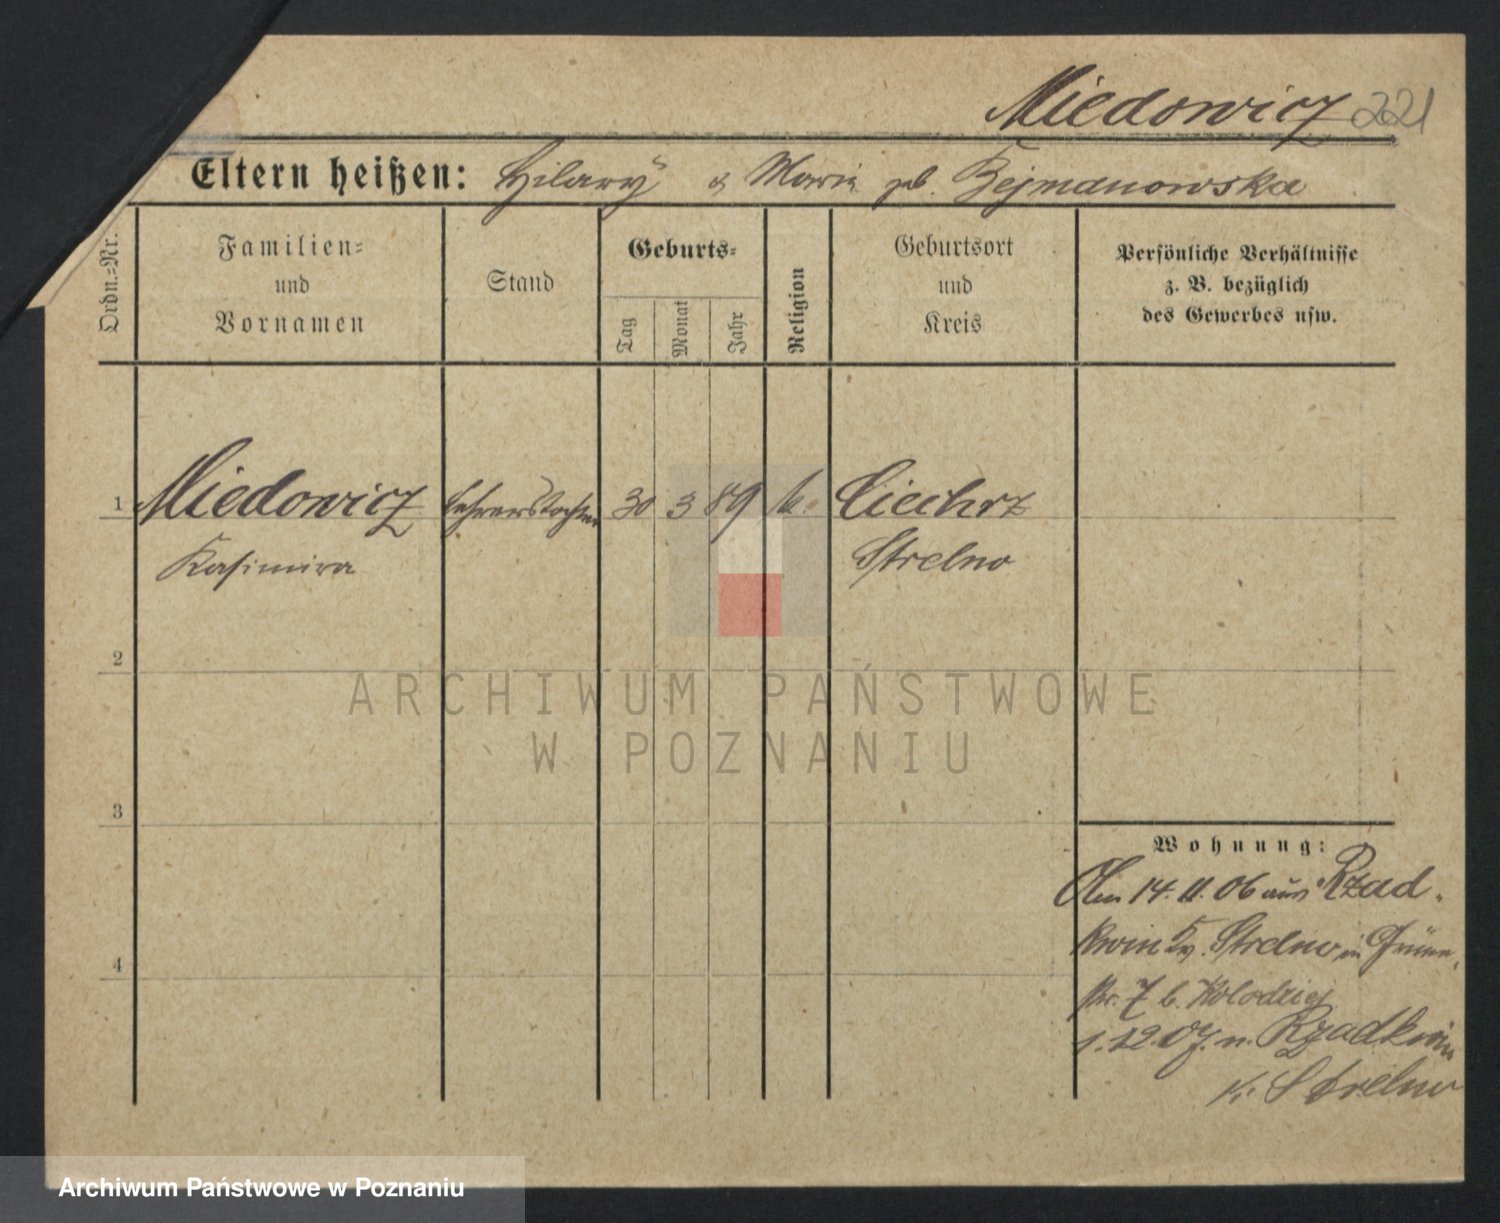 Miedowicz 221
Eltern heißen: Hilary & Marie geb. Bejmanowska
Ordn.=Nr.
Familien=
und
Vornamen
Stand
Geburts=
Tag
Monat
Jahr
Religion
Geburtsort
und
Kreis
Persönliche Verhältnisse
z. B. bezüglich
des Gewerbes usw.
1 Miedowicz Lehrerstochter 30 3 89 k. Ciechrz
Kasimira Strelno
2
3
4
ARCHIWUM PAŃSTWOWE
W POZNANIU
Wohnung:
Am 14. 11. 06 aus Rzad-
kwin Kr. Strelno in Grüne
str. 7 b. Kolodziej
1.12.07. n. Rzadkwin
Kr. Strelno
Archiwum Państwowe w Poznaniu